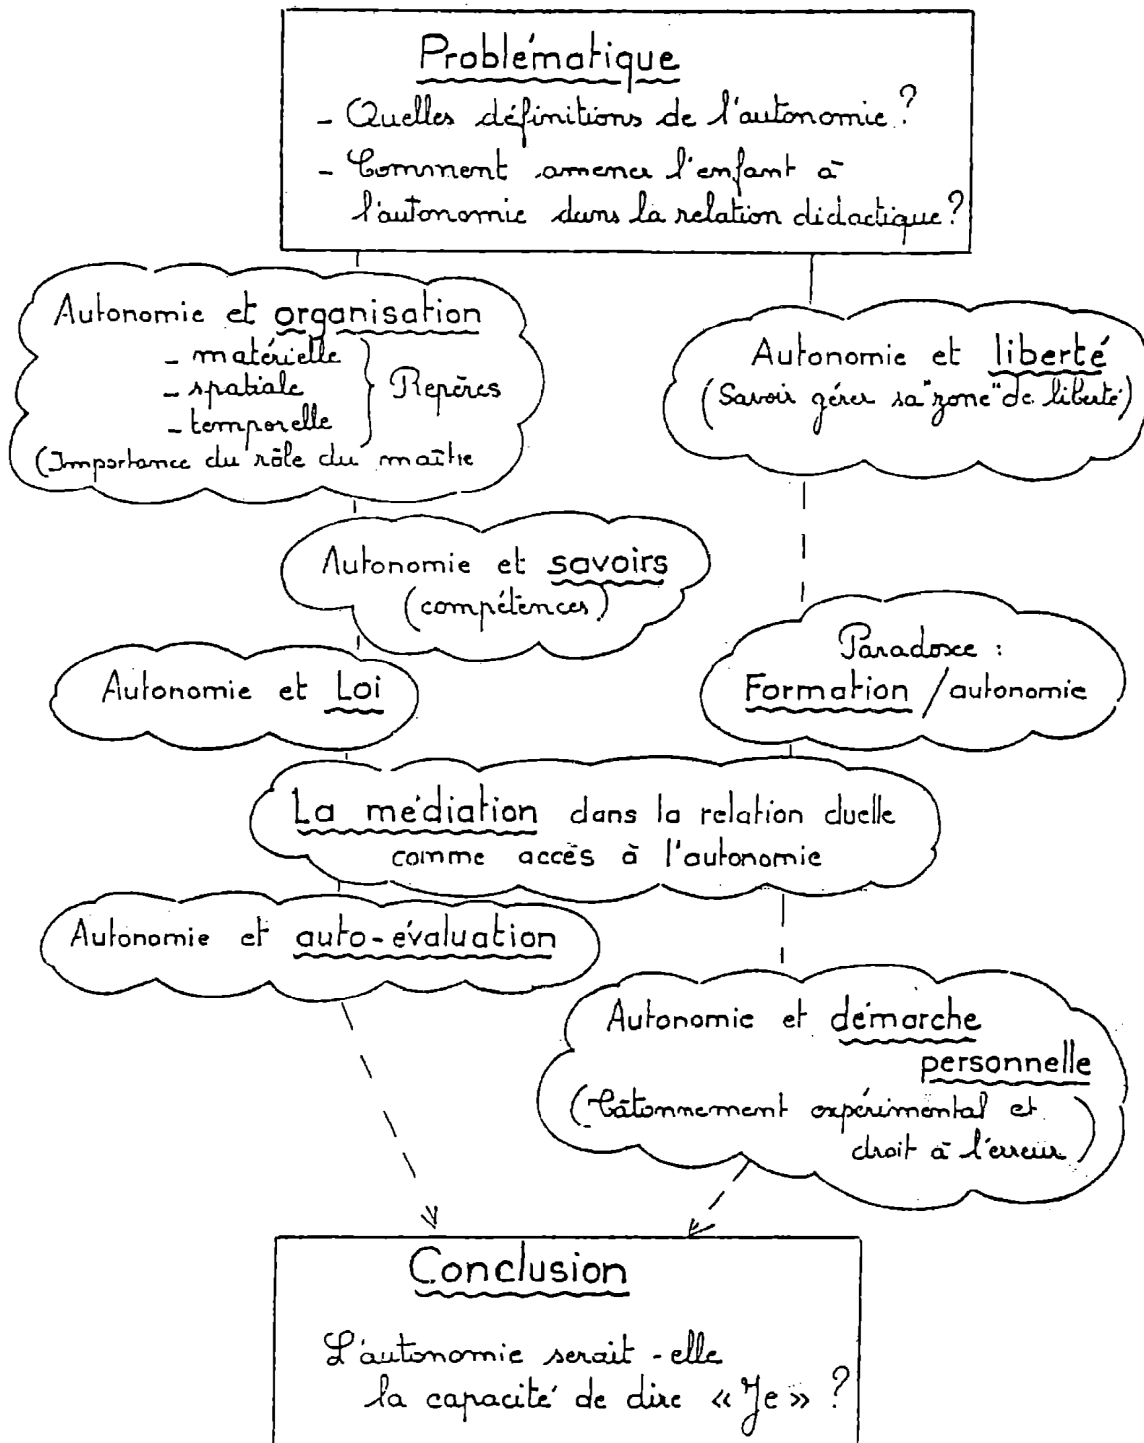 Problématique
- Quelles définitions de l'autonomie ?
- Comment amener l'enfant à
l'autonomie dans la relation didactique ?
Autonomie et organisation
- matérielle
- spatiale
- temporelle
} Repères
(Importance du rôle du maître
Autonomie et liberté
(Savoir gérer sa "zone" de liberté)
Autonomie et savoirs
(compétences)
Autonomie et Loi
Paradoxe :
Formation / autonomie
La médiation dans la relation duelle
comme accès à l'autonomie
Autonomie et auto-évaluation
Autonomie et démarche
personnelle
(Tâtonnement expérimental et
droit à l'erreur)
Conclusion
L'autonomie serait-elle
la capacité de dire « Je » ?